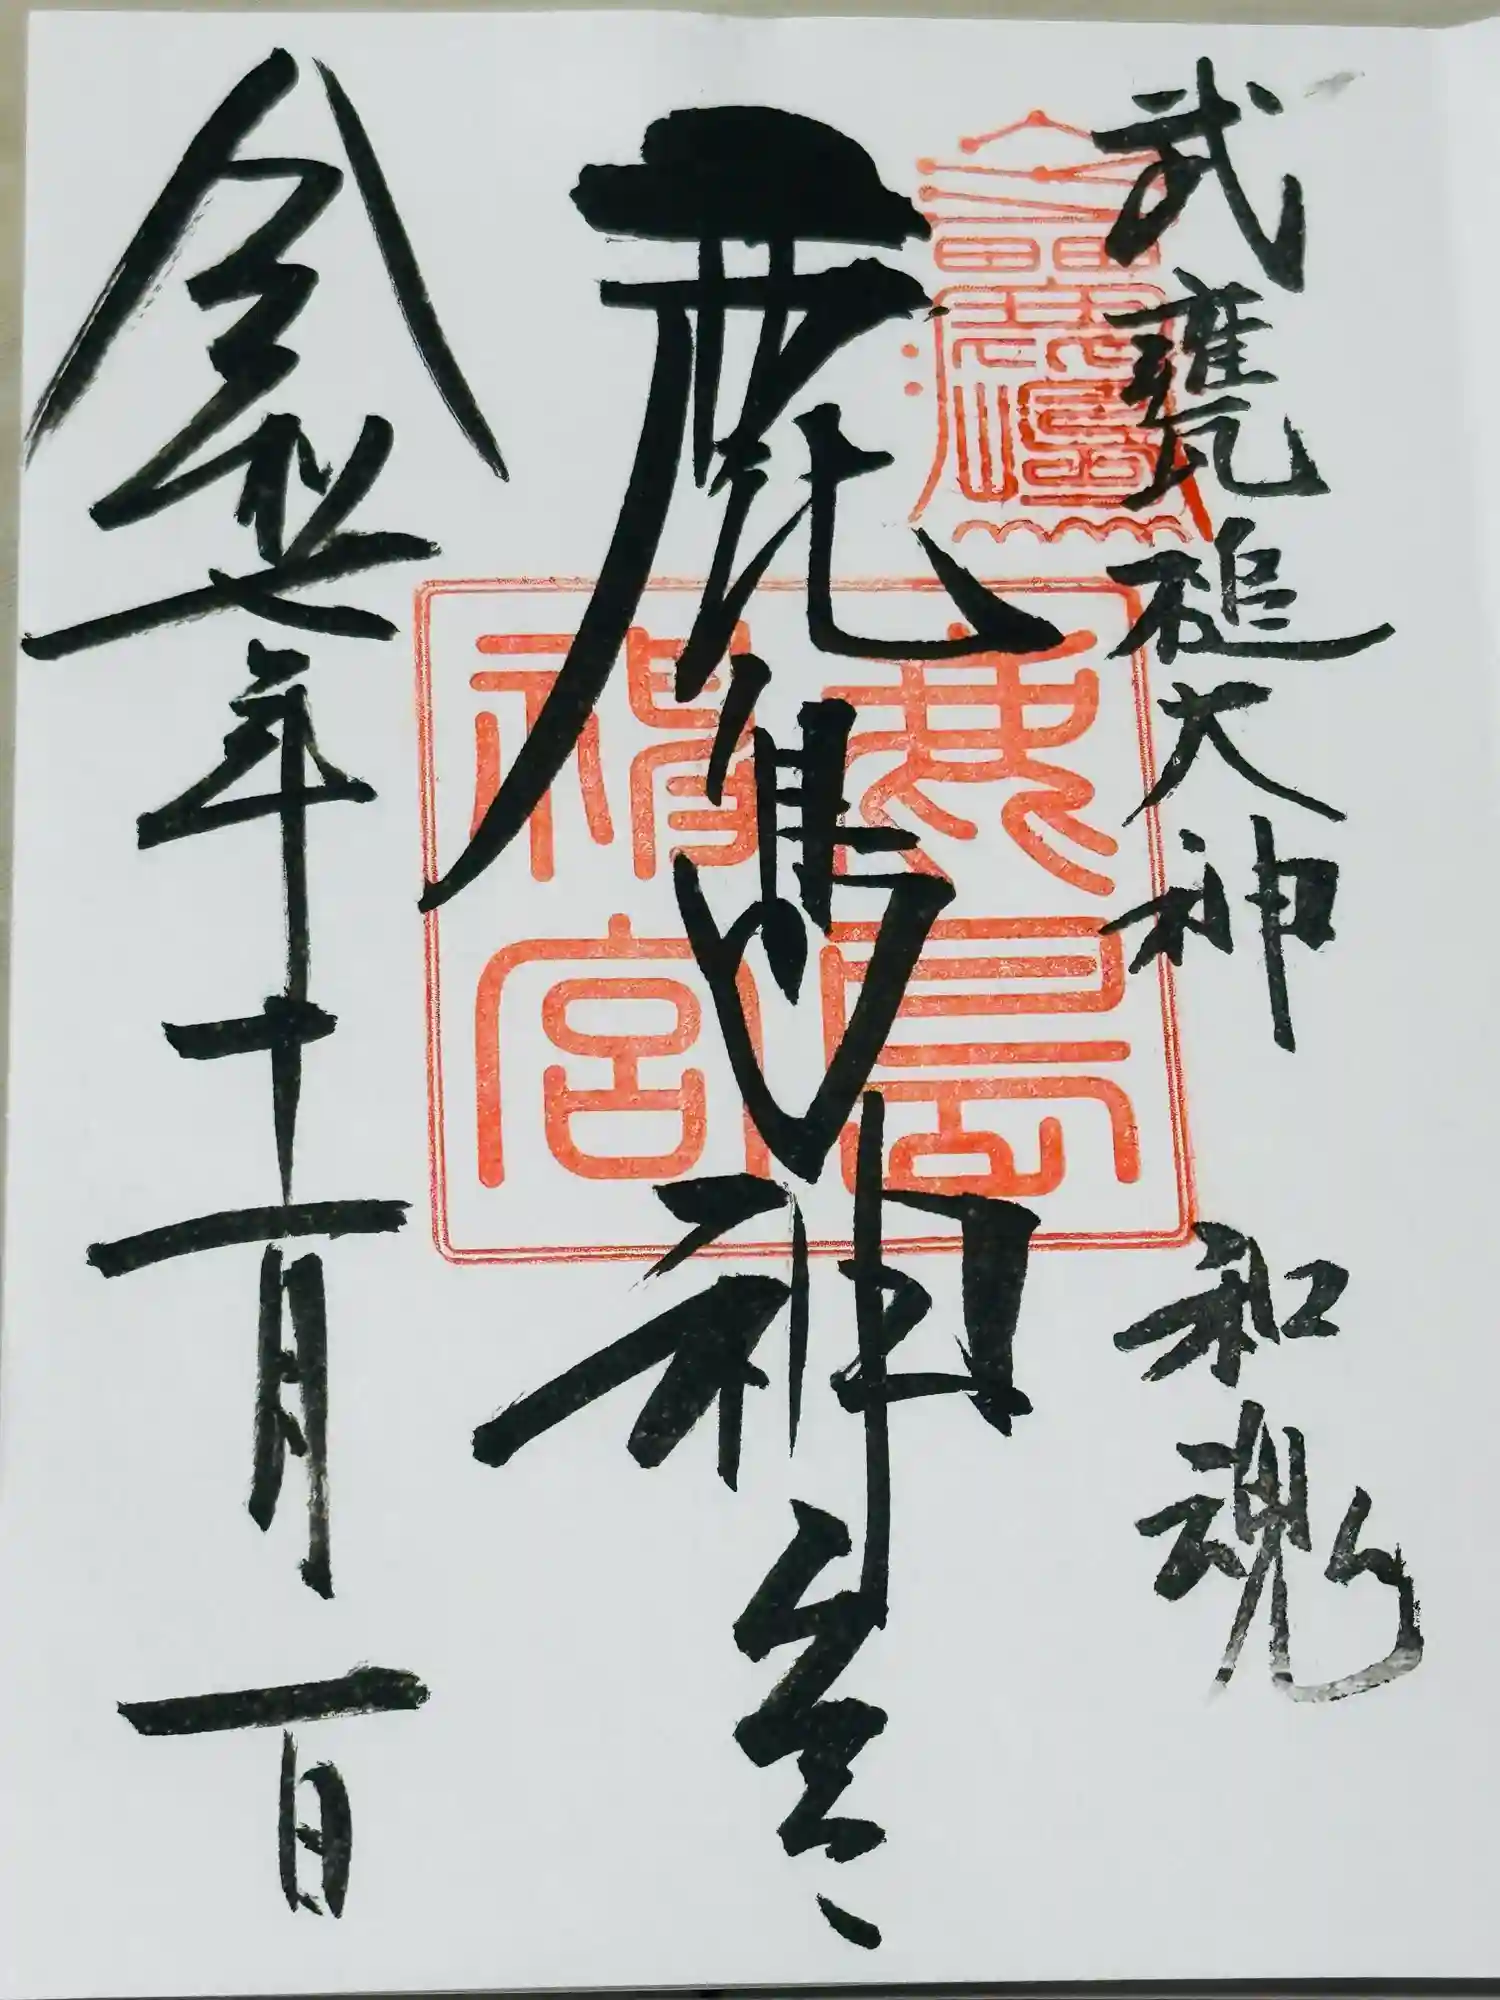 武甕槌大神　和魂
鹿島神宮
令和七年十一月一日
鹿島
神宮